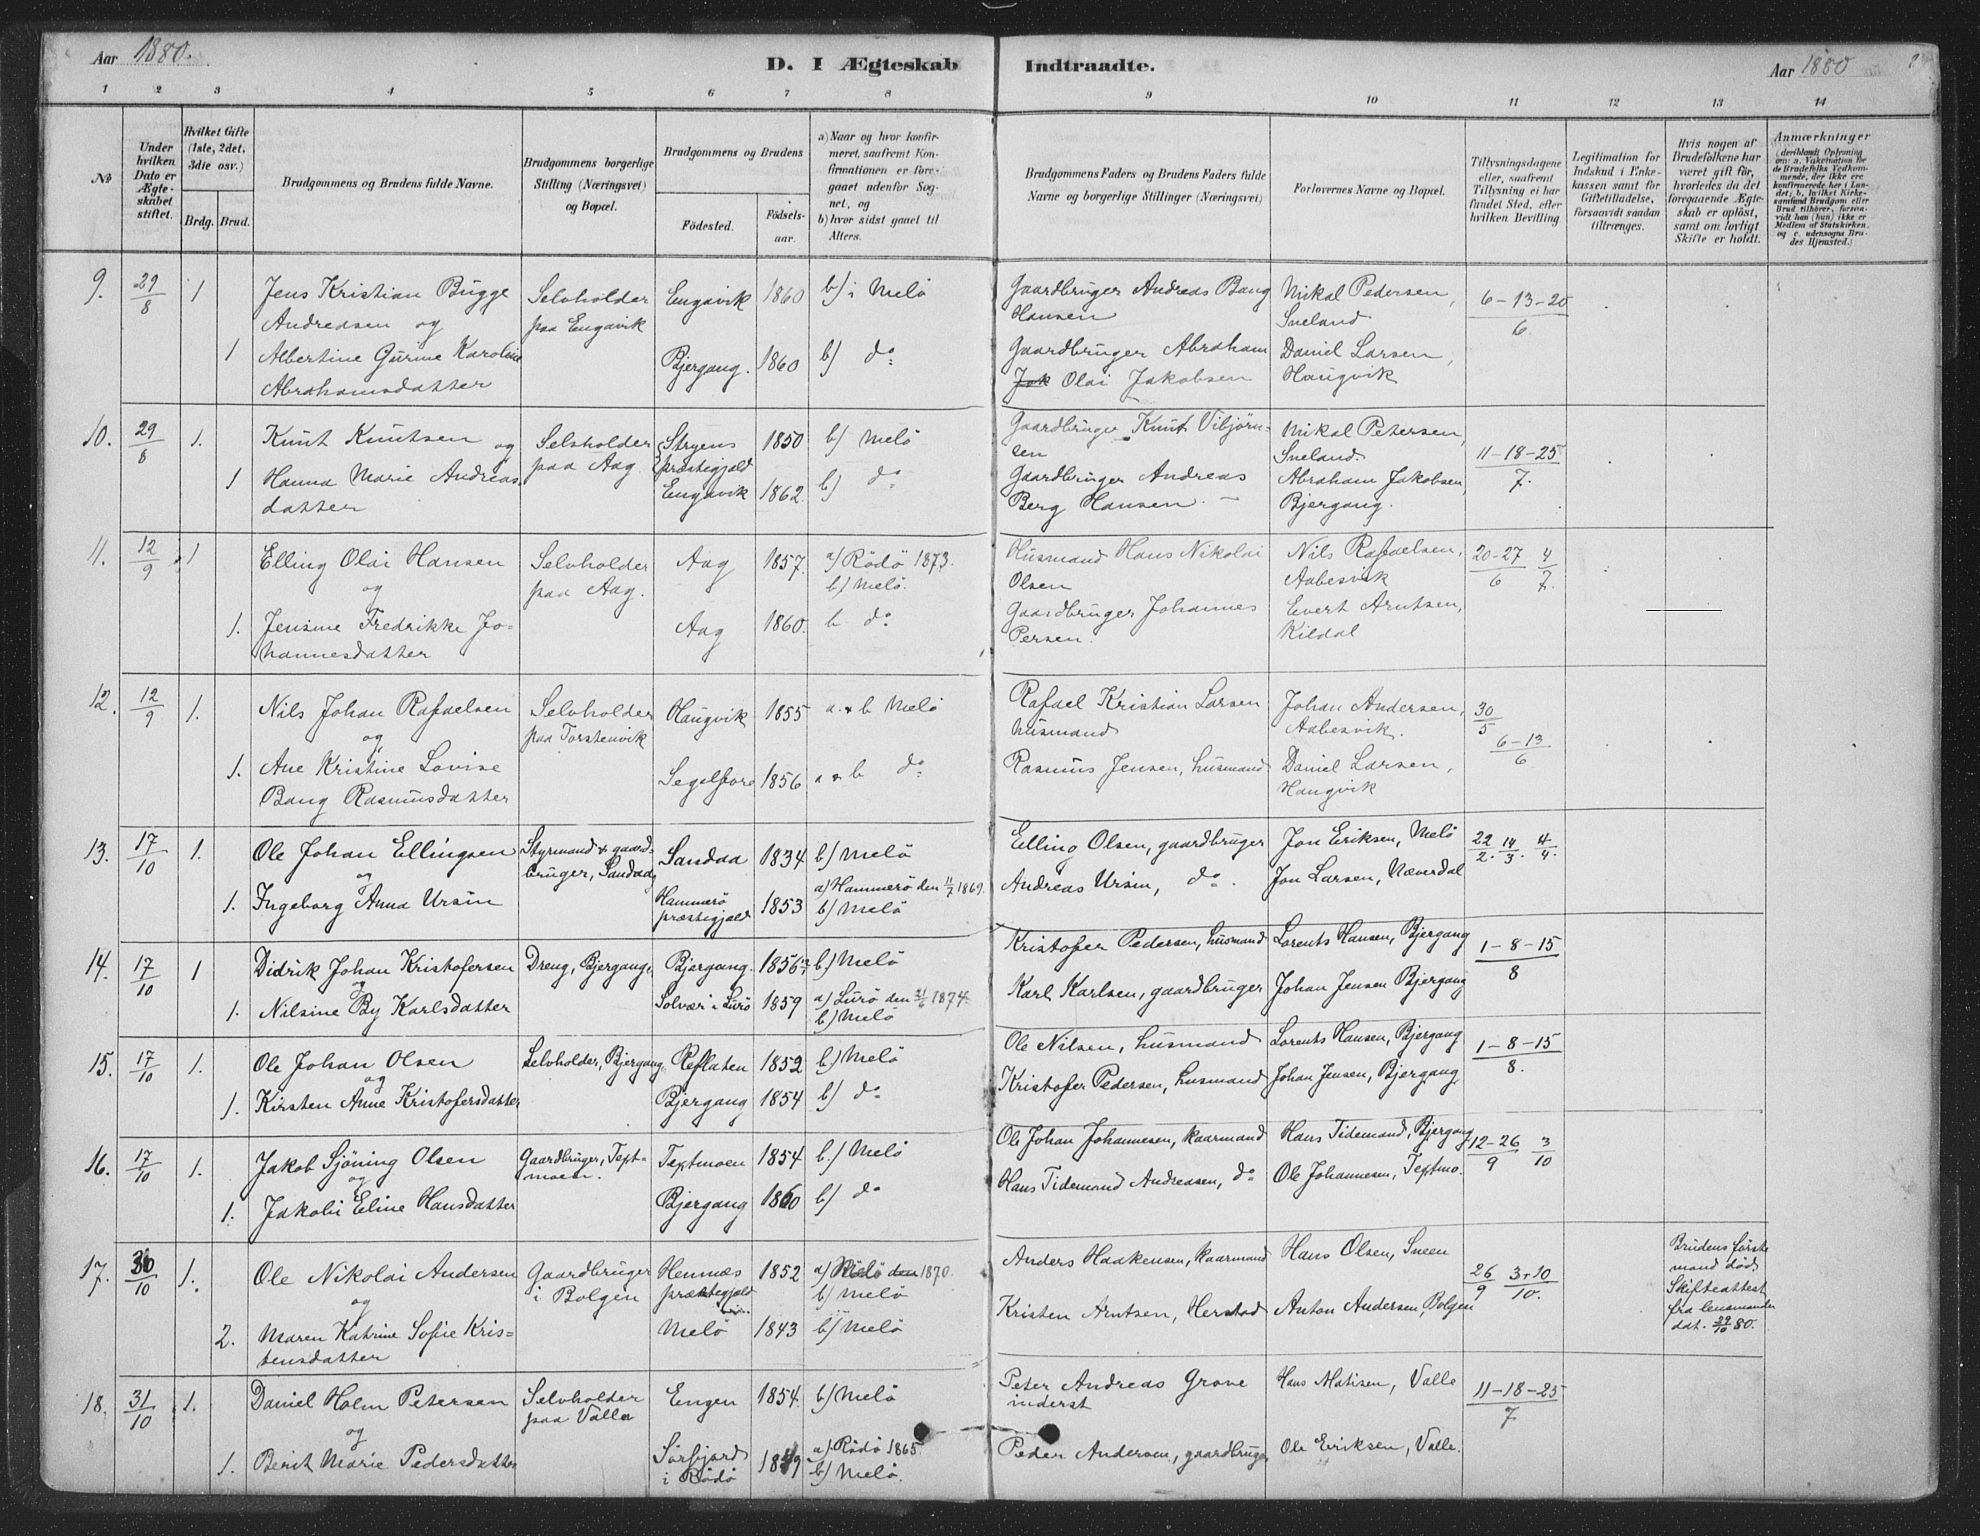 Aar 1880.
D. I Ægteskab Indtraadte.
Aar 1880
1 2 3 4 5 6 7 8 9 10 11 12 13 14
No
Under hvilken Dato er Ægteskabet stiftet.
Hvilket Gifte (1ste, 2det, 3die osv.)
Brdg. Brud.
Brudgommens og Brudens fulde Navne.
Brudgommens borgerlige Stilling (Næringsvei) og Bopæl.
Brudgommens og Brudens
Fødested.
Fødselsaar.
a) Naar og hvor konfirmeret, saafremt Konfirmationen er foregaaet udenfor Sognet, og
b) hvor sidst gaaet til Alters.
Brudgommens Faders og Brudens Faders fulde Navne og borgerlige Stillinger (Næringsvei)
Forlovernes Navne og Bopæl.
Tillysningsdagene eller, saafremt Tillysning ei har fundet Sted, efter hvilken Bevilling
Legitimation for Indskud i Enkekassen samt for Giftetilladelse, forsaavidt saadan tiltrænges.
Hvis nogen af Brudefolkene har været gift før, hvorledes da det foregaaende Ægteskab er opløst, samt om lovligt Skifte er holdt.
Anmærkninger
9. 29/8 1 Jens Kristian Bugge Selvholder Engavik 1860 b) i Melö Gaardbruger Andreas Bang Mikal Pedersen, 6-13-20/6.
Andreasen og paa Engavik Hansen Sneland
1 Albertine Gurine Karoline Bjergang. 1860 b) do Gaardbruger Abraham Daniel Larsen,
Abrahamsdatter Jak Olai Jakobsen Haugvik
10. 29/8 1. Knut Knutsen og Selvholder Stryens 1850 b) Melö Gaardbruger Knut Vibjörn- Mikal Petersen, 11-18-25/7.
paa Aag. præstegjæld sen Sneland.
1 Hanna Marie Andreas- Engavik 1862. b) do Gaardbruger Andreas Abraham Jakobsen,
datter Berg Hansen. Bjergang.
11. 12/9 1 Elling Olai Hansen Selvholder Aag 1857. a) Rödö 1873. Husmand Hans Nikolai Nils Rafaelsen, 20-27/6 4/7.
og paa Aag. b) Melö. Olsen Aabesvik
1. Jensine Fredrikke Jo- Aag 1860. b do Gaardbruger Johannes Evert Arntsen,
hannesdatter Persen. Kildal
12. 12/9 1. Nils Johan Rafaelsen Selvholder Haugvik 1855 a. & b Melö Rafael Kristian Larsen Johan Andersen, 30/5
og paa Torstenvik husmand Aabesvik. 6-13/6
1. Ane Kristine Lovise Segelfore 1856 a & b do Rasmus Jensen, husmand Daniel Larsen,
Bang Rasmusdatter Haugvik
13. 17/10 1. Ole Johan Ellingsen Styrmand & gaard- Sandaa 1834 b) Melö Elling Olsen, gaardbruger Jon Eriksen, Melö 22/2. 14/3. 4/4.
og bruger, Sandaa
1. Ingeborg Anna Ursin Hammerö præstegjæld 1853 a) Hammerö den 11/7 1869. b) Melö Andreas Ursin, do. Jon Larsen, Næverdal
14. 17/10 1 Didrik Johan Kristofersen Dreng, Bjergang, Bjergang. 1856 b) Melö Kristofer Pedersen, husmand Lorents Hansen, Bjergang 1-8-15/8
og
1. Nilsine By Karlsdatter Solvær i Lurö 1859 a) Lurö den 21/6 1874. b) Melö Karl Karlsen, gaardbruger Johan Jensen Bjergang
15. 17/10 1. Ole Johan Olsen Selvholder, Bjergang. Reflaten 1852 b) Melö Ole Nilsen, husmand Lorents Hansen, Bjergang 1-8-15/8.
og
1. Kirsten Anne Kristofersdatter Bjergang 1854 b) do Kristofer Pedersen, husmand Johan Jensen, Bjergang
16. 17/10 1. Jakob Sjöning Olsen Gaardbruger, Text- Textmoen 1854 b.) Melö Ole Johan Johannesen, kaarmand Hans Tidemand, Bjergang 12-26/9 3/10
og moen.
1. Jakobi Eline Hansdatter Bjergang 1860 b) do Hans Tidemand Andreasen, do Ole Johannesen, Textmo.
17. 30/10 1. Ole Nikolai Andersen Gaardbruger Hemnæs 1852 a) Rödö den 1870. Anders Haakensen, kaarmand Hans Olsen, Sneen 26/9 3+10/10.
og i Bolgen præstegjæld b) Melö
2. Maren Katrine Sofie Kris- Melö 1843 b) Melö Kristen Arntsen, Herstad Anton Andersen, Bolgen
tensdatter
Brudens første mand død. Skifteattest fra lensmanden dat. 29/10 80.
18. 31/10 1. Daniel Holm Petersen Selvholder Engen 1854. b) Melö Peter Andreas Grove Hans Matisen, Valle 11-18-25/7
og paa Valla inderst
1. Berit Marie Pedersdatter Sörfjord i Rödö 1849 a) Rödö 1865 b) Melö. Peder Andersen, gaardbruger Ole Eriksen, Valle.